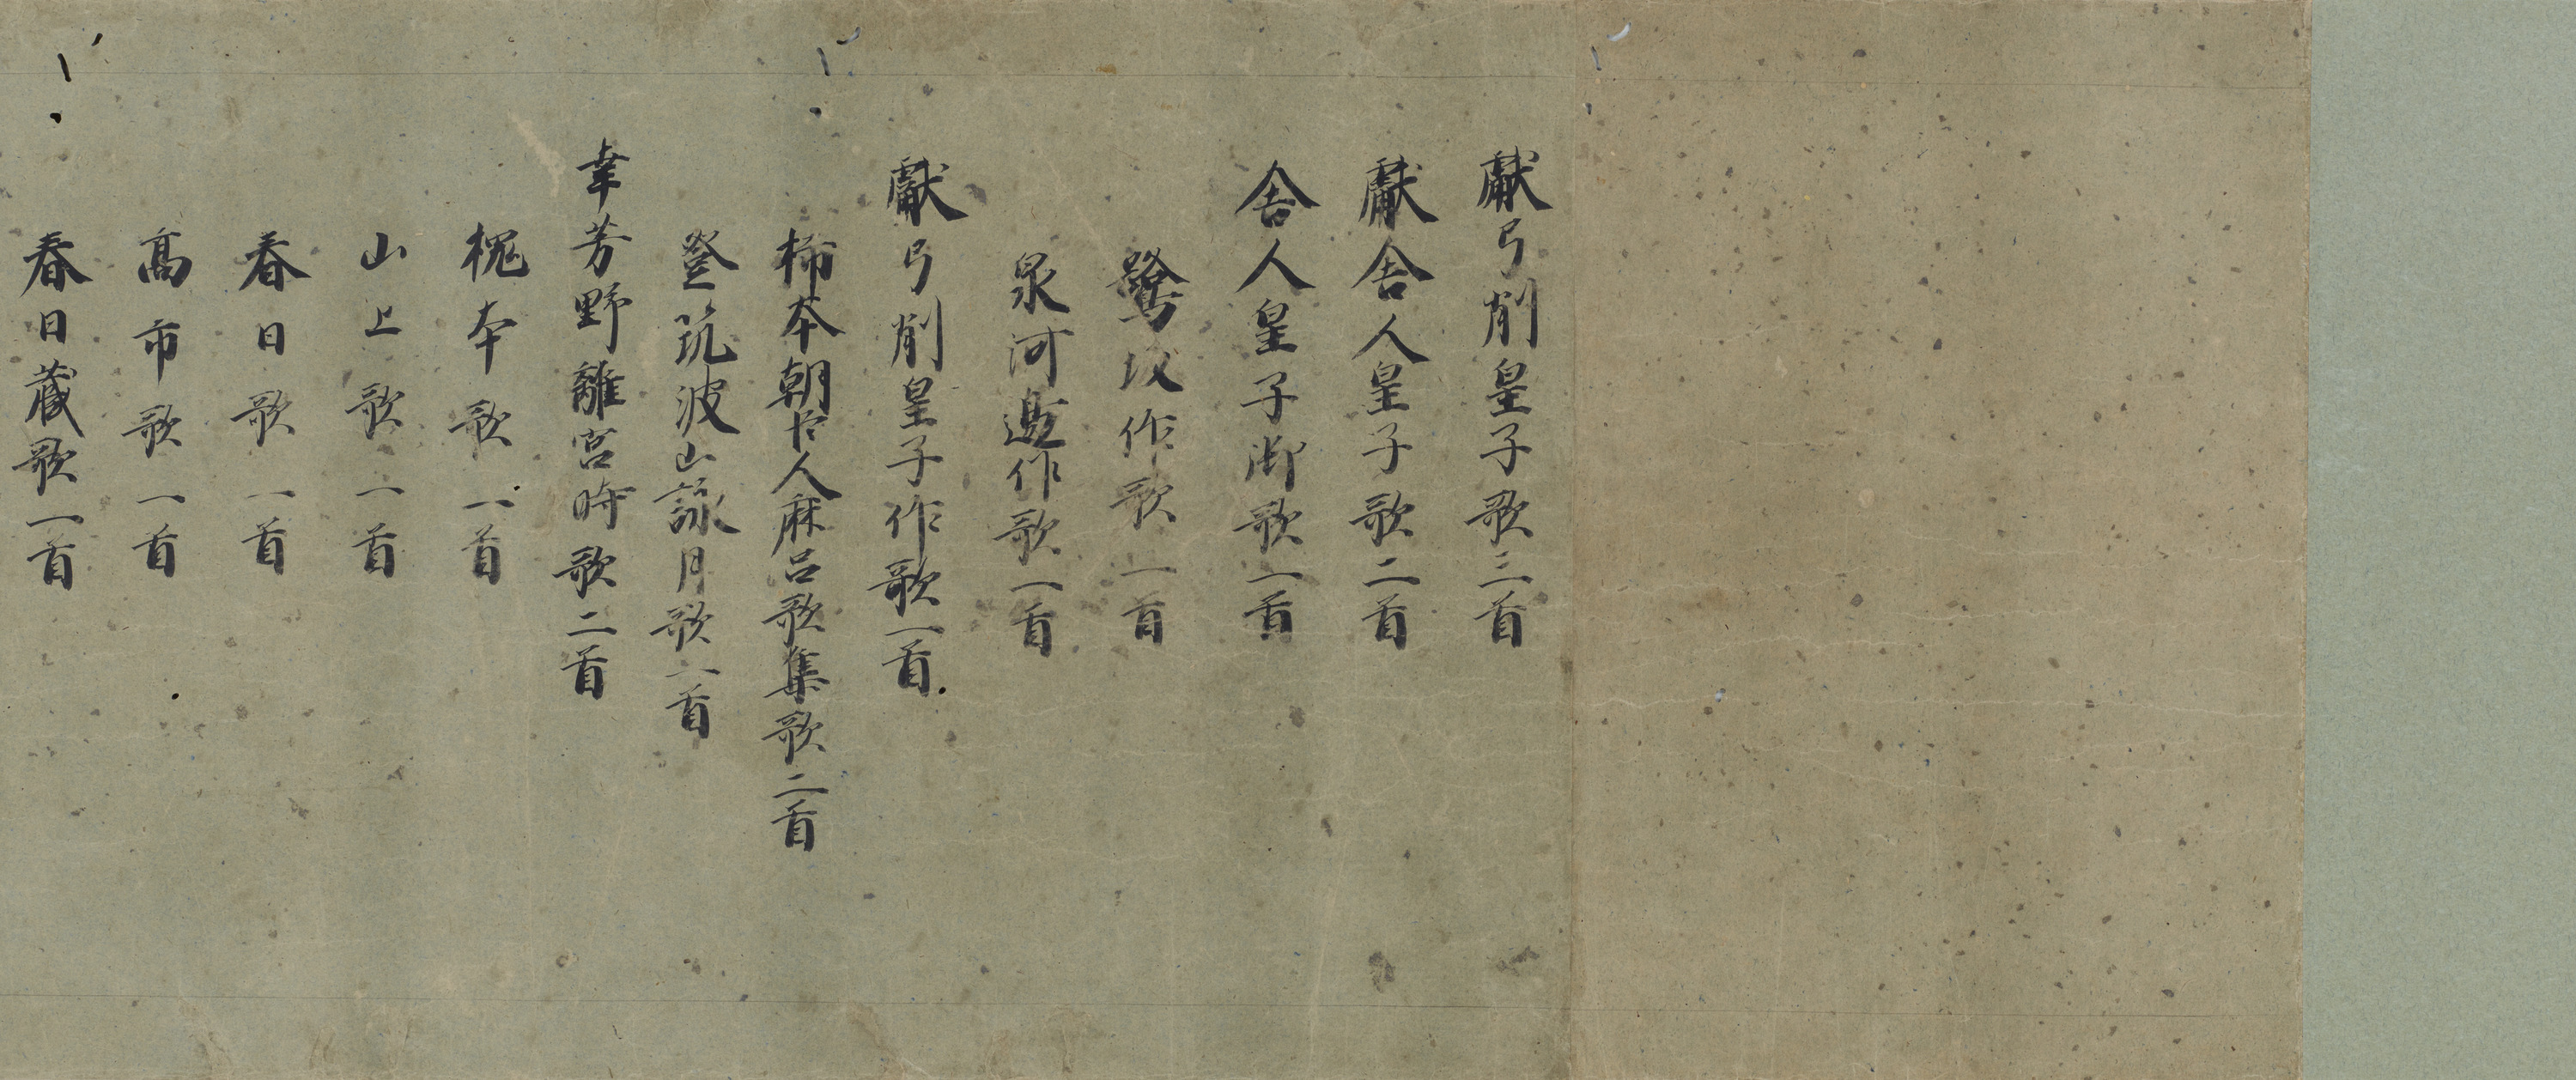 獻弓削皇子歌三首
獻舎人皇子歌二首
舎人皇子御歌一首
鷺坂作歌一首
泉河邊作歌一首
獻弓削皇子作歌一首
柿本朝臣人麻呂歌集歌二首
登筑波山詠月歌一首
幸芳野離宮時歌二首
槐本歌一首
山上歌一首
春日歌一首
髙市歌一首
春日蔵歌一首